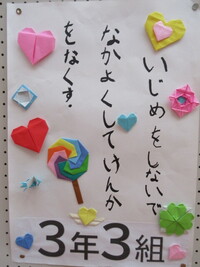 いじめをしないで
なかよくしてけんか
をなくす.
3年3組